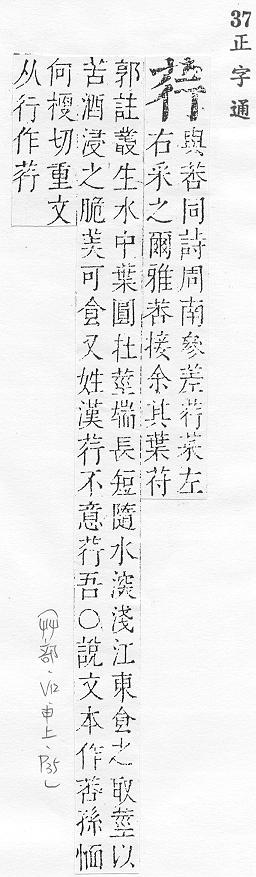 37正字通
荇
與莕同詩周南參差荇菜左
右采之爾雅莕接余其葉苻
郭註叢生水中葉圓在莖端長短隨水深淺江東食之取莖以
苦酒浸之脆美可食又姓漢荇不意荇吾○說文本作莕孫愐
何梗切重文
从行作荇
(艸部、V12申上、P35)